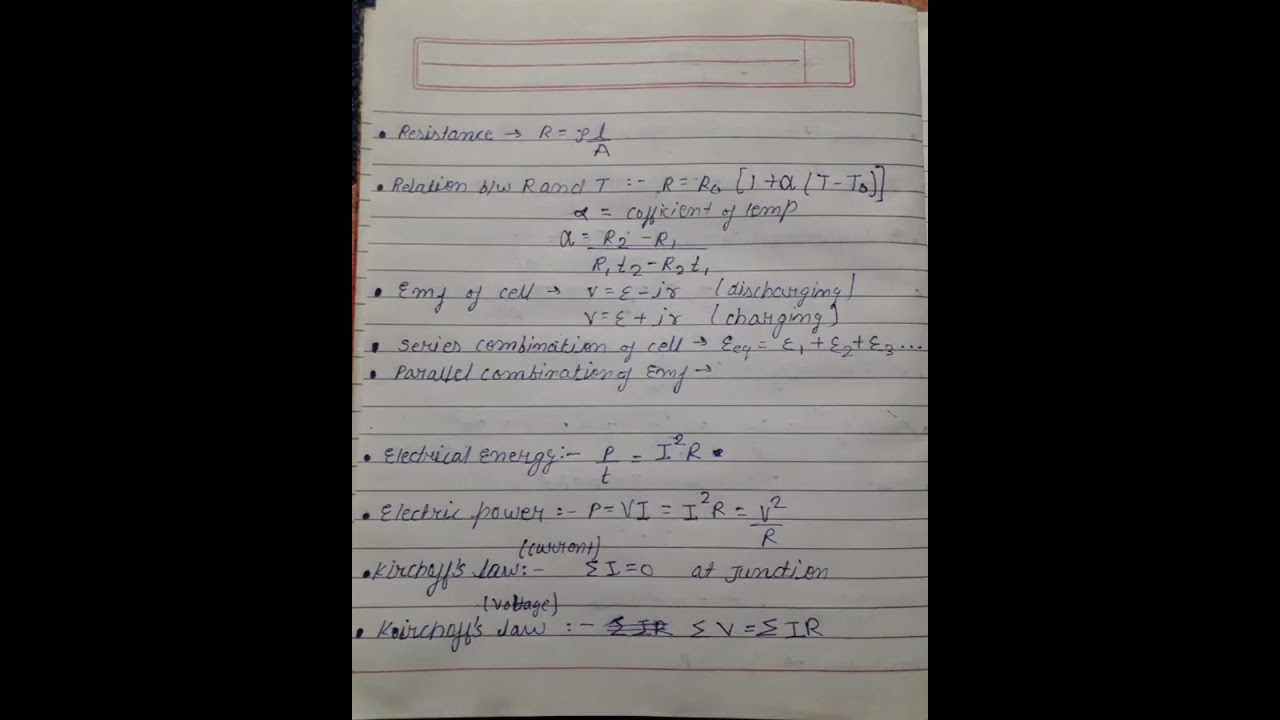 • Resistance → R = ρ l/A
• Relation b/w R and T :- R = R₀ [1 + α (T - T₀)]
α = cofficient of temp
α = R₂ - R₁ / R₁t₂ - R₂t₁
• Emf of cell → v = ε - ir (discharging)
v = ε + ir (charging)
• series combination of cell → εeq = ε₁ + ε₂ + ε₃ ...
• Parallel combination of Emf →
• Electrical Energy :- P/t = I²R
• Electric power :- P = VI = I²R = V²/R
(current)
• Kirchoff's Law :- Σ I = 0 at Junction
(voltage)
• Kirchoff's Law :- Σ IR Σ V = Σ IR